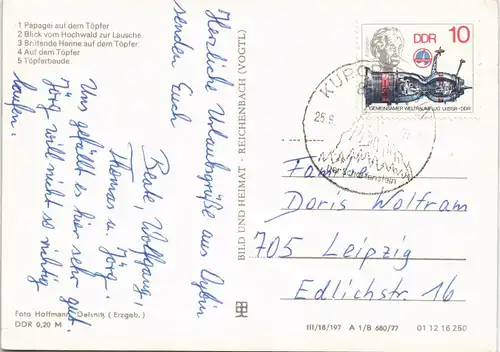 1 Papagei auf dem Töpfer
2 Blick vom Hochwald zur Lausche
3 Brütende Henne auf dem Töpfer
4 Auf dem Töpfer
5 Töpferbaude
Herzliche Urlaubsgrüße aus Oybin
senden Euch
Beate, Wolfgang,
Thomas u. Jörg.
Uns gefällt es hier sehr gut.
Jörg will nicht so richtig
laufen.
Foto Hoffmann, Oelsnitz (Erzgeb.)
DDR 0,20 M
BILD UND HEIMAT · REICHENBACH (VOGTL)
III/18/197 A 1/B 680/77 01 12 16 250
DDR 10
GEMEINSAMER WELTRAUMFLUG UdSSR-DDR
KURORT
25.9.
Familie
Doris Wolfram
705 Leipzig
Edlichstr 16